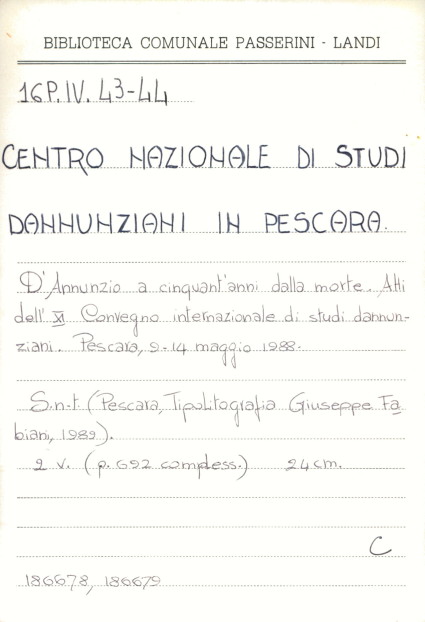 BIBLIOTECA COMUNALE PASSERINI - LANDI
16P.IV. 43-44
CENTRO NAZIONALE DI STUDI
DANNUNZIANI IN PESCARA.
D'Annunzio a cinquant'anni dalla morte. Atti
dell' XI Convegno internazionale di studi dannun-
ziani. Pescara, 9-14 maggio 1988.
S.n.t. (Pescara, Tipolitografia Giuseppe Fa
biani, 1989).
2 v. (p. 692 compless.) 24 cm.
C
186678, 186679